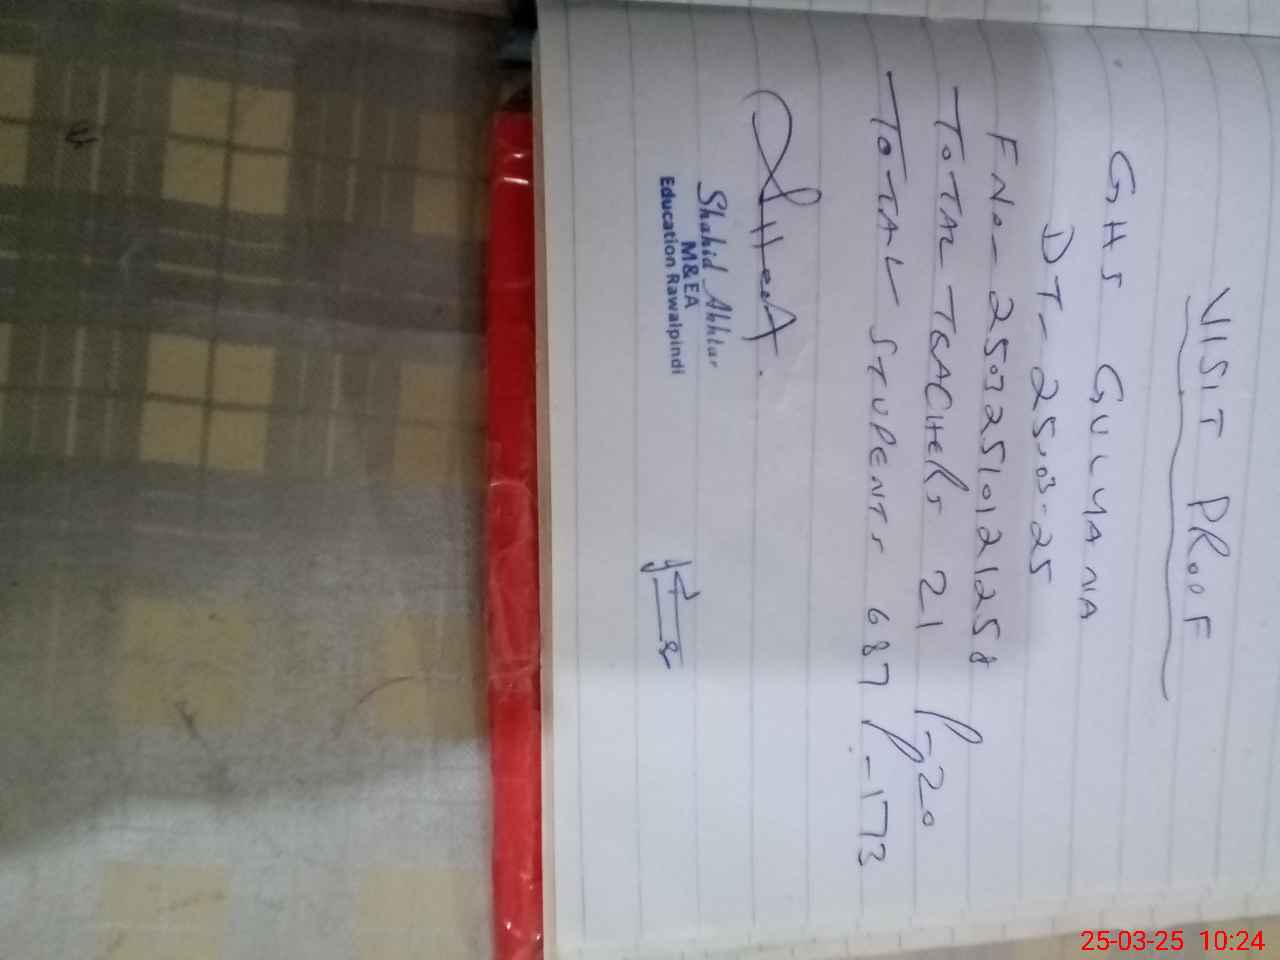 VISIT PROOF
GHS GULYANA
DT- 25-03-25
FNo- 25032510121258
TOTAL TEACHERS 21 P-20
TOTAL STUDENTS 687 P-173
Shahid Akhtar
M&EA
Education Rawalpindi
25-03-25 10:24